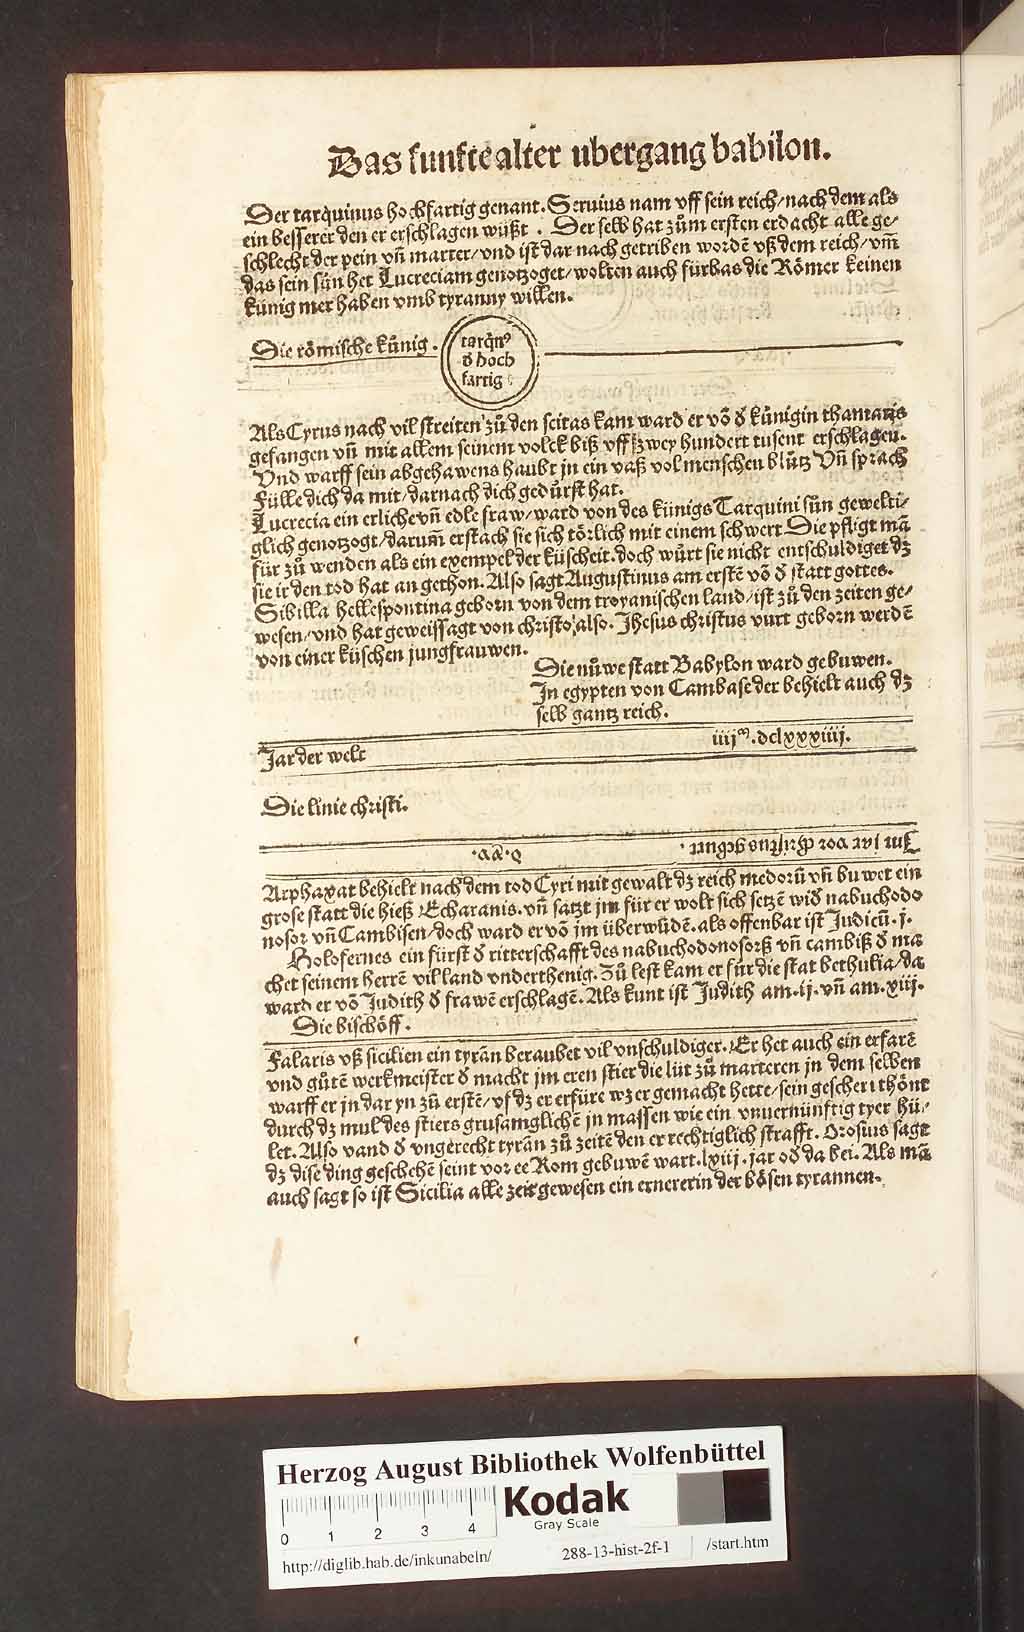 Das funfte alter ubergang babilon.
Der tarquinus hochfartig genant. Seruius nam vff sein reich/nach dem als
ein besserer den er erschlagen wüßt. Der selb hat zům ersten erdacht alle ge-
schlecht der pein vñ marter/vnd ist dar nach getriben wordē vß dem reich/vm̄
das sein sün het Lucreciam genotzoget/wolten auch fürbas die Römer keinen
künig mer haben vmb tyranny willen.
Die römische künig.
tarq̃nꝰ
ð hoch
fartig
Als Cyrus nach vil streiten zů den scitas kam ward er võ ð künigin thamaris
gefangen vñ mit allem seinem volck biß vff zwey hundert tusent erschlagen.
Vnd warff sein abgehawens haubt jn ein vaß vol menschen blůtz Vñ sprach
Fülle dich da mit/darnach dich gedürst hat.
Lucrecia ein erliche vñ edle fraw/ward von des künigs Tarquini sün gewelti-
glich genotzogt/darum̄ erstach sie sich törlich mit einem schwert Die pfligt mā
für zů wenden als ein exempel der küscheit. doch würt sie nicht entschuldiget dz
sie ir den tod hat an gethon. Also sagt Augustinus am erstē võ ð statt gottes.
Sibilla Hellespontina geborn von dem troyanischen land/ist zů den zeiten ge-
wesen/vnd hat geweissagt von christo also. Jhesus christus vurt geborn werdē
von einer küschen jungfrauwen.
Die nůwe statt Babylon ward gebuwen.
Jn egypten von Cambase der behielt auch dz
selb gantz reich.
Jar der welt iiijᵐ.dclxxxiiij.
Die linie christi.
Jm jar vor christus geburt. v.c.xv.
Arphaxat behielt nach dem tod Cyri mit gewalt dz reich medorū vñ buwet ein
grose statt die hieß Echaranis. vñ satzt jm für er wolt sich setzē wið nabuchodo
nosor vñ Cambisen/doch ward er võ jm überwūdē. als offenbar ist Judicū.j.
Holofernes ein fürst ð ritterschafft des nabuchodonosorß vñ cambiß ð ma
chet seinem herrē vil land vnderthenig. Zů lest kam er für die stat bethulia/da
ward er võ Judith ð frawē erschlagē. Als kunt ist Judith am.ij.vñ am.xiij.
Die bischöff.
Falaris vß sicilien ein tyrān beraubet vil vnschuldiger. Er het auch ein erfarē
vnd gůtē werkmeister ð macht jm eren stier die lüt zů marteren jn dem selben
warff er jn dar yn zů erstē/vf dz er erfüre wz er gemacht hette/sein geschei thönt
durch dz mul des stiers grusamglichē jn massen wie ein vnuernünftig tyer hü-
let. Also vand ð vngerecht tyrān zů zeitē den er rechtiglich strafft. Orosius sagt
dz dise ding geschehē seint vor ee Rom gebuwē wart. lxiij. jar oð da bei. Als mā
auch sagt so ist Sicilia alle zeit gewesen ein ernererin der bösen tyrannen.
Herzog August Bibliothek Wolfenbüttel
0 1 2 3 4
Kodak
Gray Scale
http://diglib.hab.de/inkunabeln/ 288-13-hist-2f-1 /start.htm